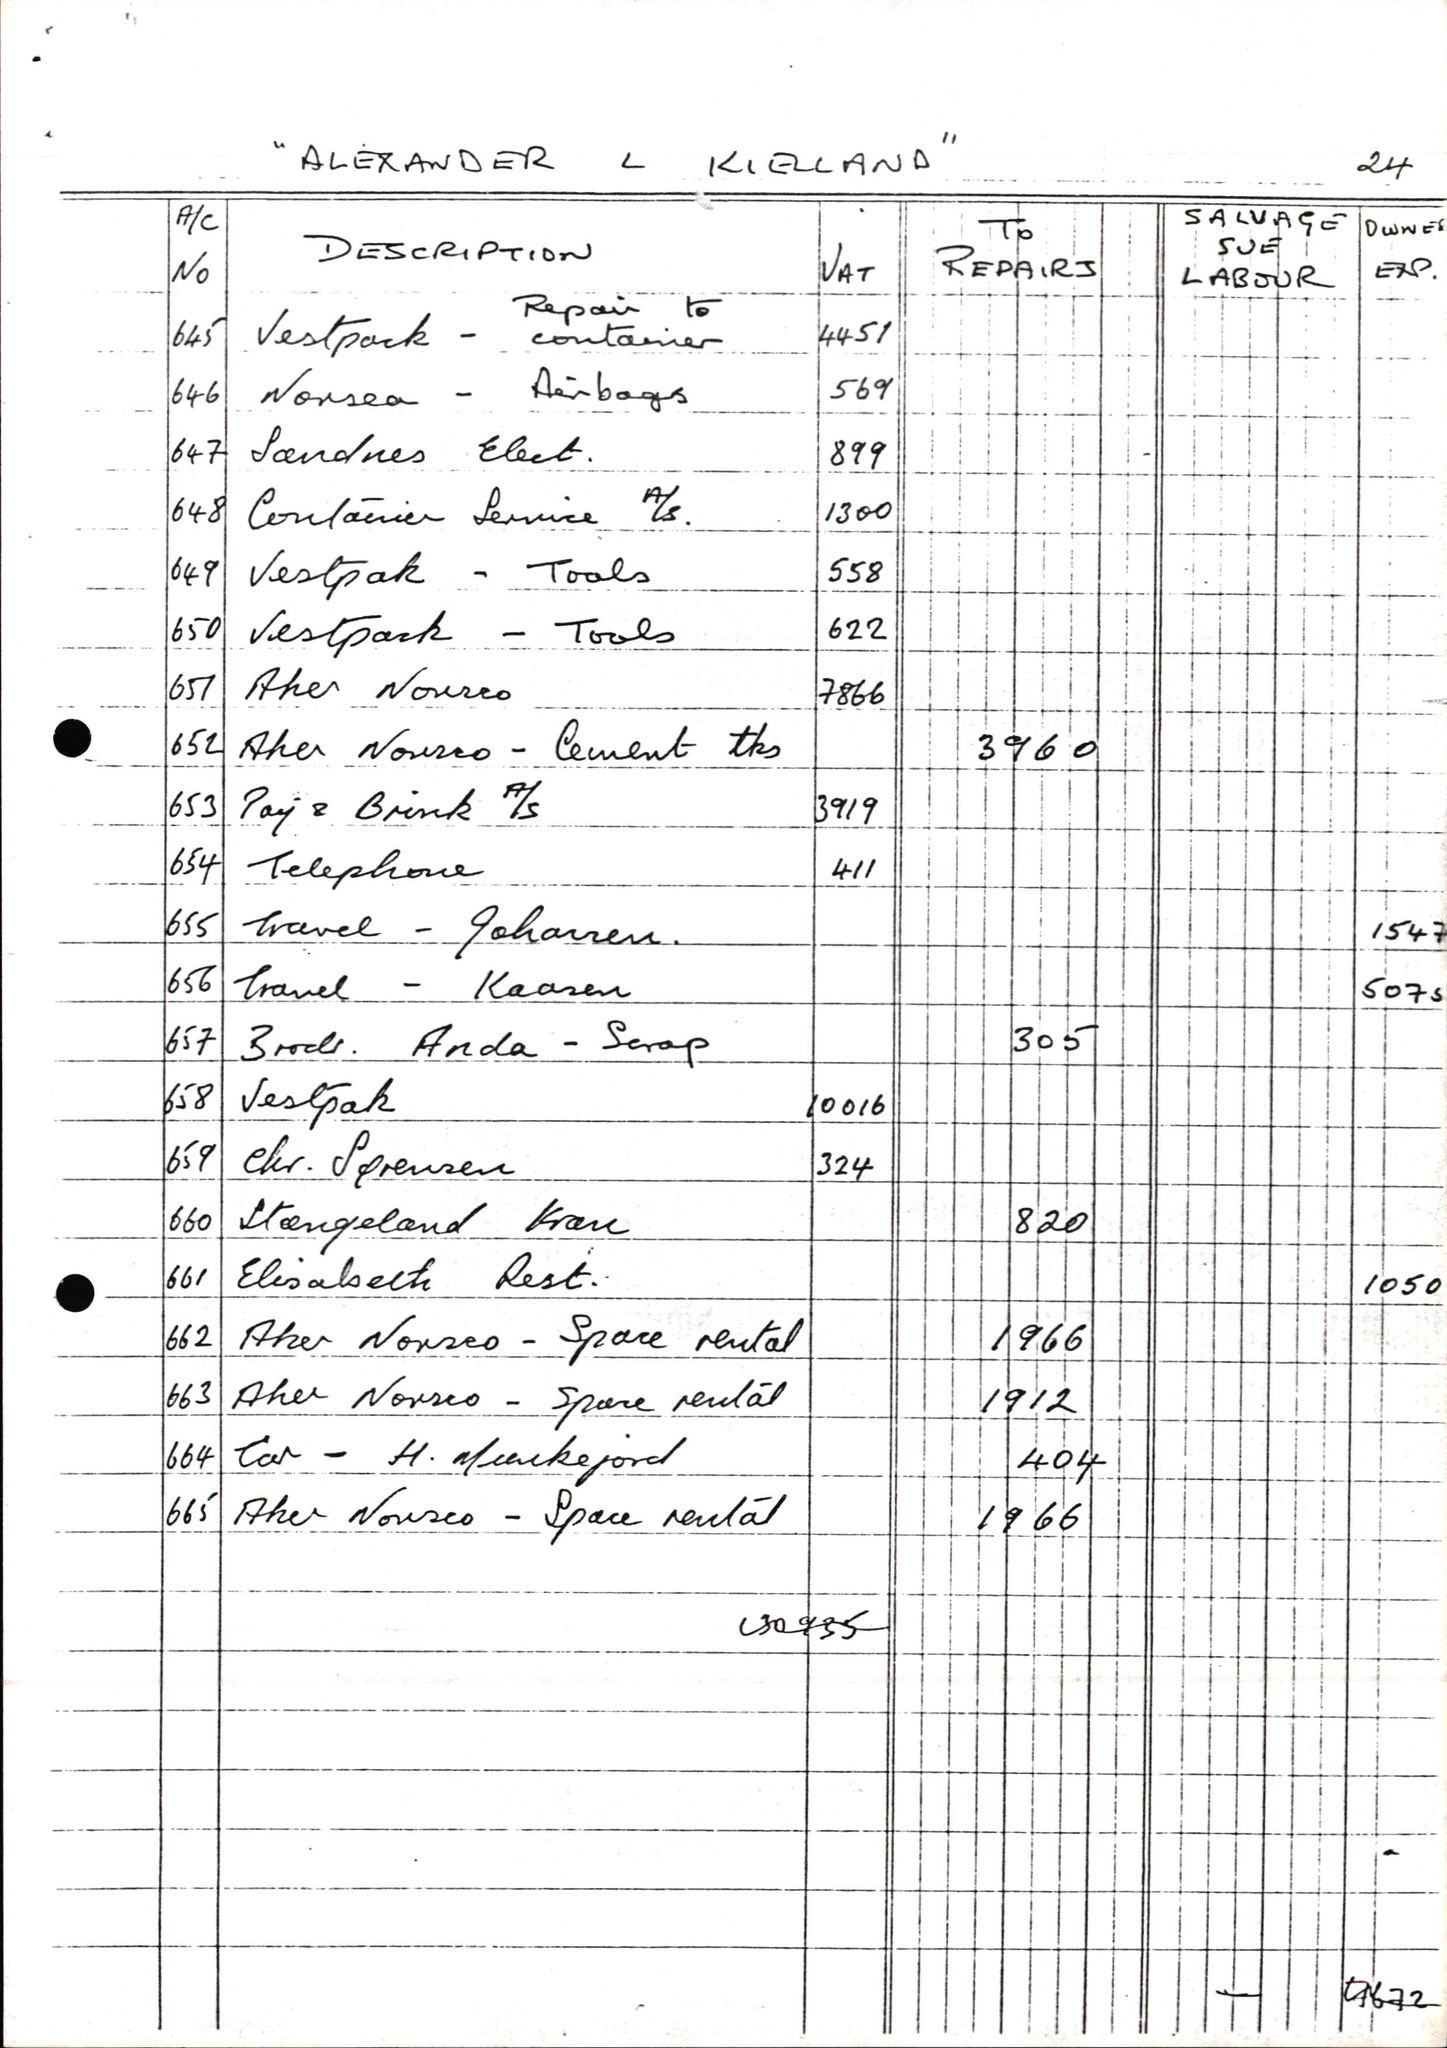 "ALEXANDER L KIELLAND" 24
A/C No DESCRIPTION VAT TO REPAIRS SALVAGE SUE LABOUR OWNES EXP.
645 Vestpack - Repair to container 4451
646 Norsea - Airbags 569
647 Sandnes Elect. 899
648 Container Service A/S. 1300
649 Vestpak - Tools 558
650 Vestpack - Tools 622
651 Aker Norsco 7866
652 Aker Norsco - Cement tks 3960
653 Pay & Brink A/S 3919
654 Telephone 411
655 Travel - Johansen. 1547
656 Travel - Kaasen 5075
657 Brodr. Anda - Scrap 305
658 Vestpak 10016
659 Chr. Sørensen 324
660 Stangeland Kran 820
661 Elisabeth Rest. 1050
662 Aker Norsco - Space rental 1966
663 Aker Norsco - Space rental 1912
664 Car - H. Munkejord 404
665 Aker Norsco - Space rental 1966
30935
— 7672